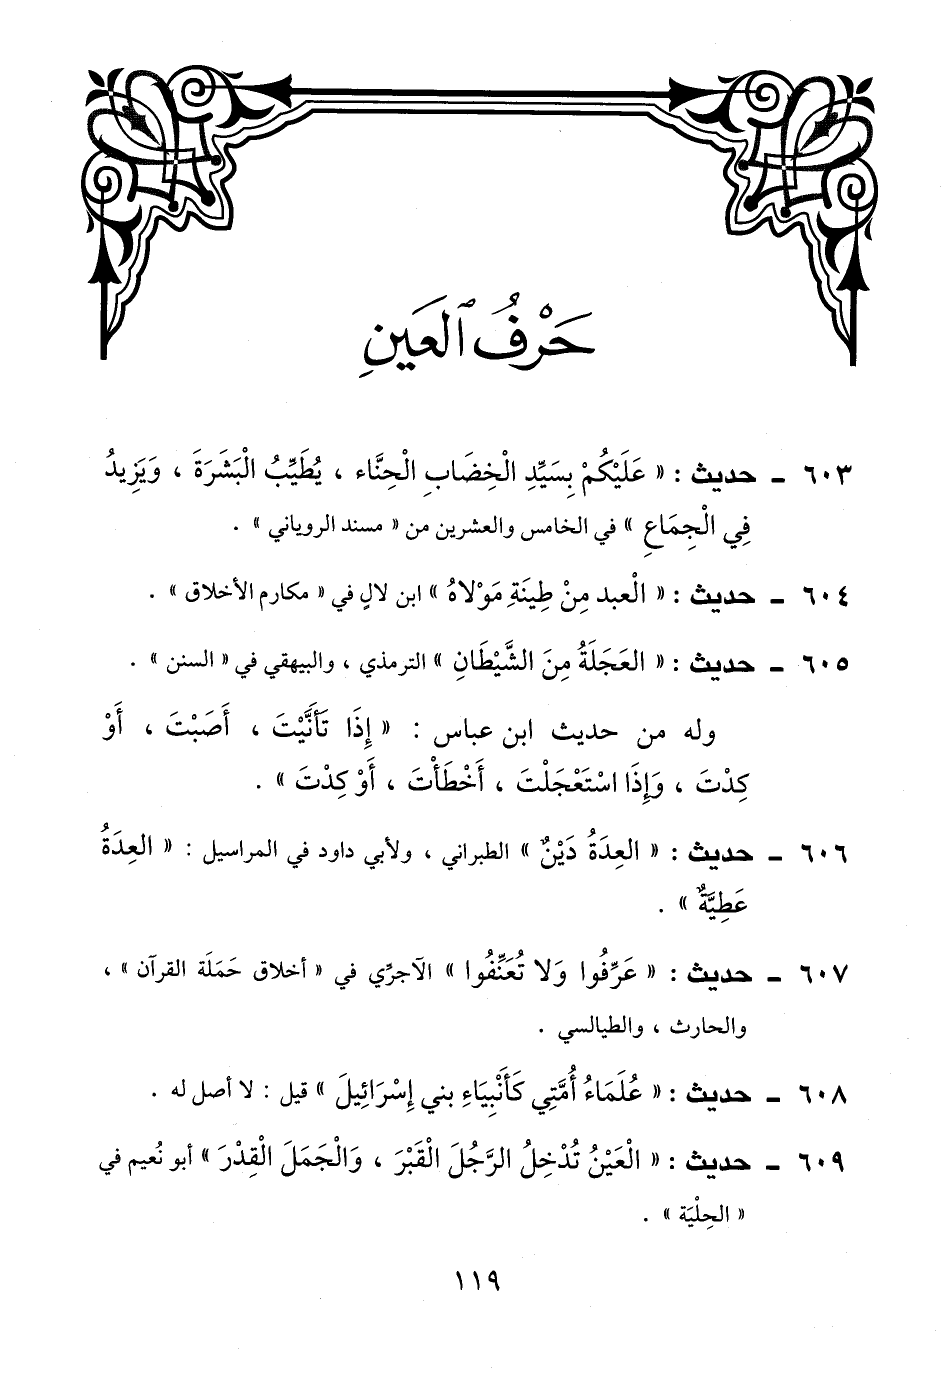 حَرْفُ ٱلعَينِ
٦٠٣ - حديث : « عَلَيْكُمْ بِسَيِّدِ الْخِضَابِ الْحِنَّاء ، يُطَيِّبُ الْبَشَرَةَ ، وَيَزِيدُ
فِي الْجِمَاعِ » في الخامس والعشرين من « مسند الروياني » .
٦٠٤ - حديث : « الْعبد مِنْ طِينَةِ مَوْلاهُ » ابن لالٍ في « مكارم الأخلاق » .
٦٠٥ - حديث : « العَجَلَةُ مِنَ الشَّيْطَانِ » الترمذي ، والبيهقي في « السنن » .
وله من حديث ابن عباس : « إِذَا تَأَنَّيْتَ ، أَصَبْتَ ، أَوْ
كِدْتَ ، وَإِذَا اسْتَعْجَلْتَ ، أَخْطَأْتَ ، أَوْ كِدْتَ » .
٦٠٦ - حديث : « العِدَةُ دَيْنٌ » الطبراني ، ولأبي داود في المراسيل : « العِدَةُ
عَطِيَّةٌ » .
٦٠٧ - حديث : « عَرِّفُوا وَلا تُعَنِّفُوا » الآجرِّي في « أخلاق حَمَلَة القرآن » ،
والحارث ، والطيالسي .
٦٠٨ - حديث : « عُلَمَاءُ أُمَّتِي كَأَنْبِيَاءِ بني إِسْرَائِيلَ » قيل : لا أصل له .
٦٠٩ - حديث : « الْعَيْنُ تُدْخِلُ الرَّجُلَ الْقَبْرَ ، وَالْجَمَلَ الْقِدْرَ » أبو نُعيم في
« الحِلْيَة » .
١١٩